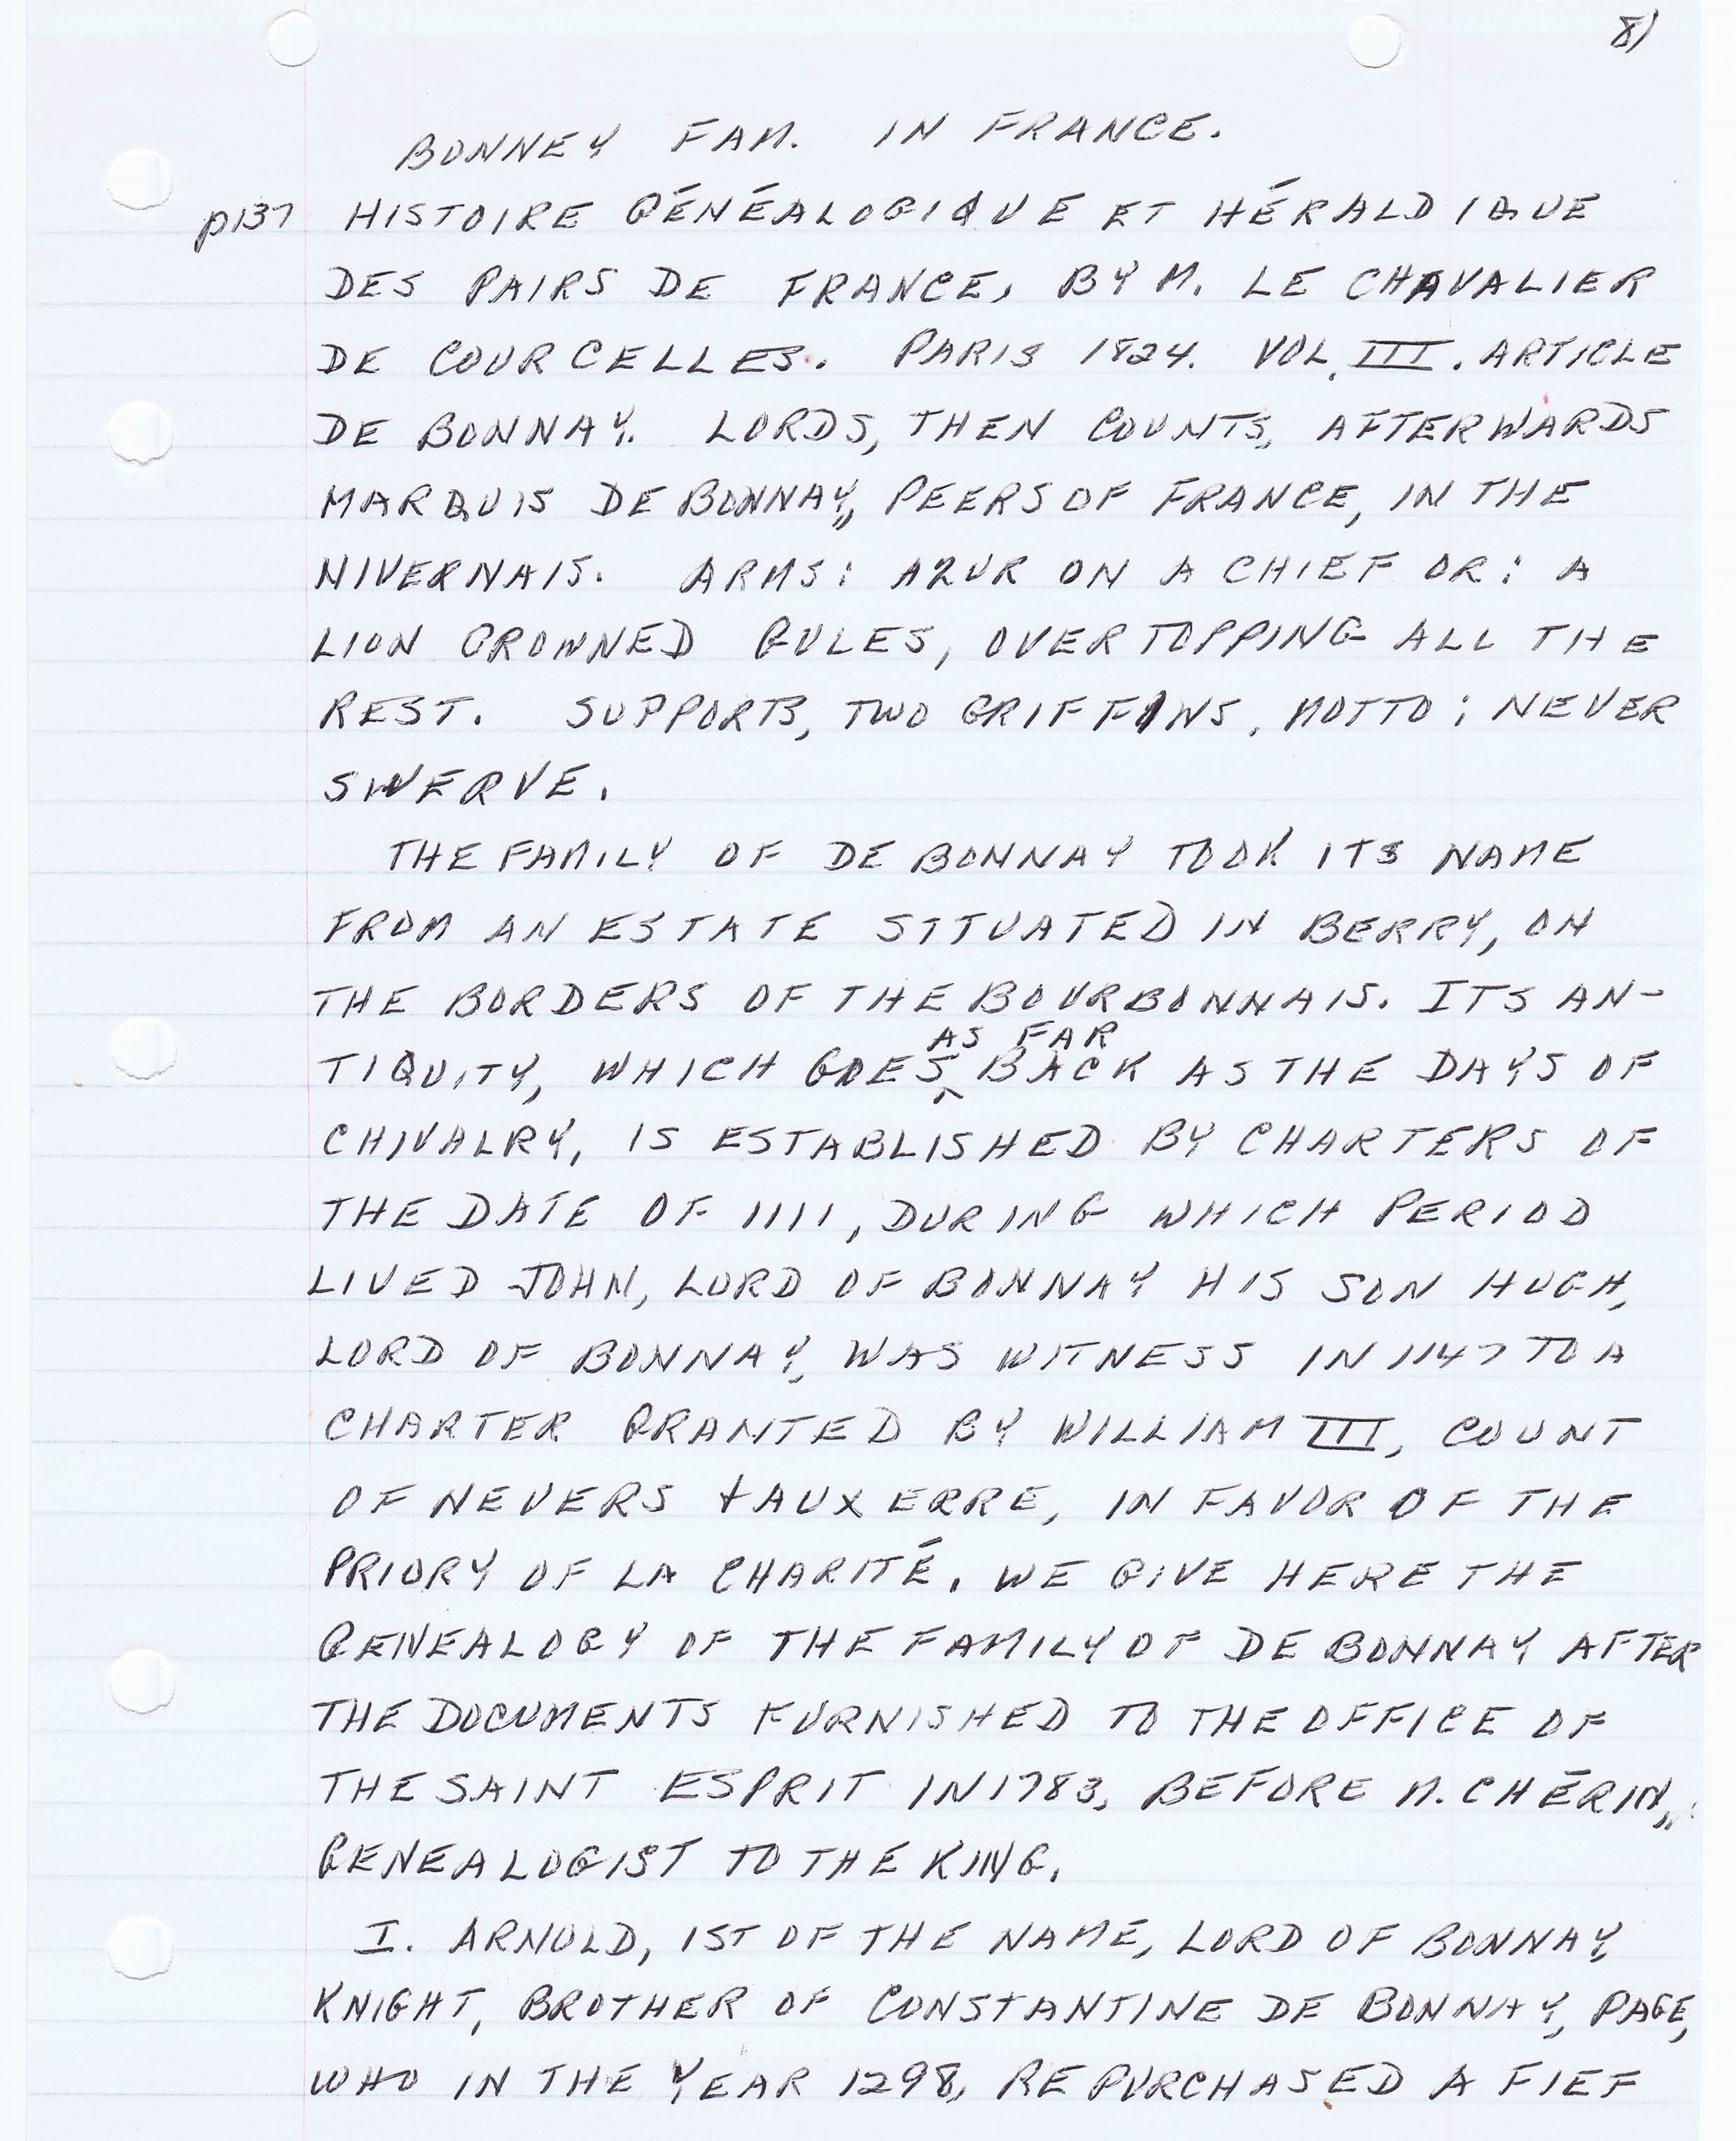 8)
BONNEY FAM. IN FRANCE.
p137 HISTOIRE GÉNÉALOGIQUE ET HÉRALDIQUE
DES PAIRS DE FRANCE, BY M. LE CHAVALIER
DE COURCELLES. PARIS 1824. VOL. III. ARTICLE
DE BONNAY. LORDS, THEN COUNTS, AFTERWARDS
MARQUIS DE BONNAY, PEERS OF FRANCE, IN THE
NIVERNAIS. ARMS: AZUR ON A CHIEF OR: A
LION CROWNED GULES, OVERTOPPING ALL THE
REST. SUPPORTS, TWO GRIFFINS. MOTTO: NEVER
SWERVE.
THE FAMILY OF DE BONNAY TOOK ITS NAME
FROM AN ESTATE SITUATED IN BERRY, ON
THE BORDERS OF THE BOURBONNAIS. ITS AN-
AS FAR
TIQUITY, WHICH GOES ^ BACK AS THE DAYS OF
CHIVALRY, IS ESTABLISHED BY CHARTERS OF
THE DATE OF 1111, DURING WHICH PERIOD
LIVED JOHN, LORD OF BONNAY HIS SON HUGH,
LORD OF BONNAY, WAS WITNESS IN 1147 TO A
CHARTER GRANTED BY WILLIAM III, COUNT
OF NEVERS + AUXERRE, IN FAVOR OF THE
PRIORY OF LA CHARITÉ. WE GIVE HERE THE
GENEALOGY OF THE FAMILY OF DE BONNAY AFTER
THE DOCUMENTS FURNISHED TO THE OFFICE OF
THE SAINT ESPRIT IN 1783, BEFORE M. CHÉRIN,
GENEALOGIST TO THE KING.
I. ARNOLD, 1ST OF THE NAME, LORD OF BONNAY,
KNIGHT, BROTHER OF CONSTANTINE DE BONNAY, PAGE,
WHO IN THE YEAR 1298, REPURCHASED A FIEF